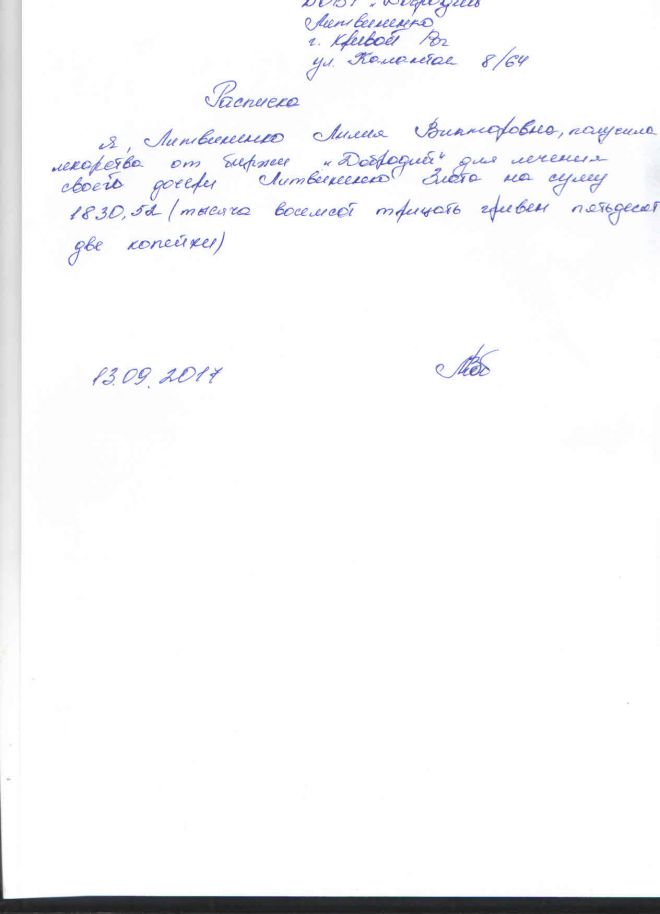 Литвиненко
г. Кривой Рог
ул. 8/64
Расписка
Я, Литвиненко Лилия Викторовна, получила
лекарства от биржи "Добродий" для лечения
своей дочери Литвиненко Злата на сумму
1830,52 (тысяча восемсот трицать гривен пятьдесят
две копейки)
13.09.2017